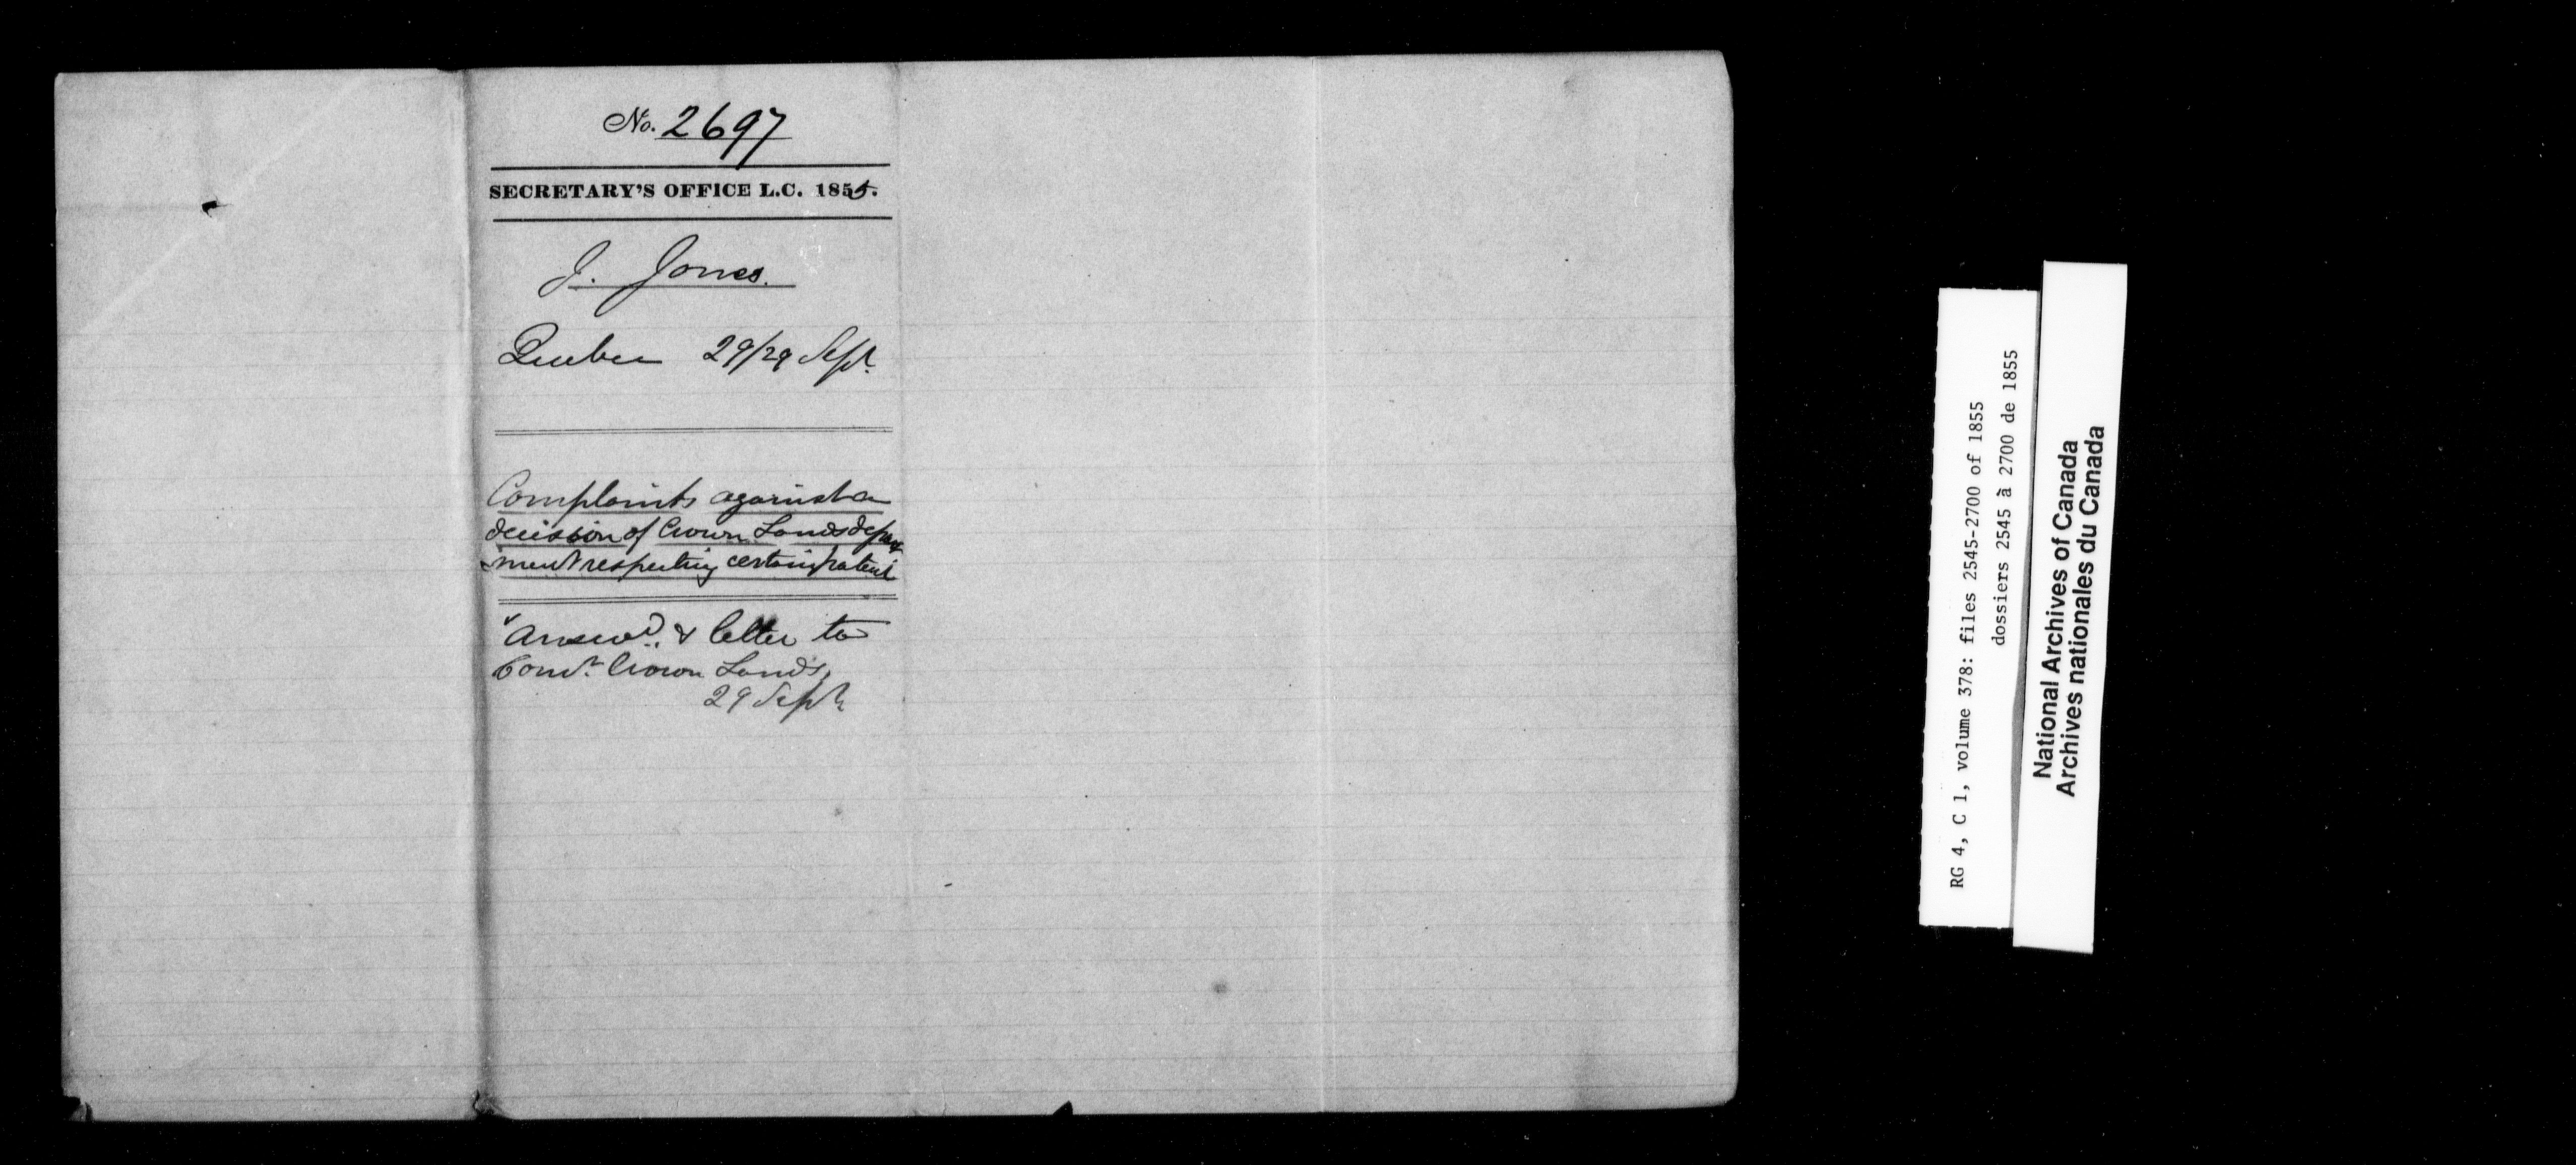 No. 2697
SECRETARY'S OFFICE L.C. 1855.
J. Jones.
Quebec 29/29 Sept.
Complaints against a
decision of Crown Lands depart
ment respecting certain patent
Answd. & letter to
Comr. Crown Lands,
29 Sept.
RG 4, C 1, volume 378: files 2545-2700 of 1855
dossiers 2545 à 2700 de 1855
National Archives of Canada
Archives nationales du Canada